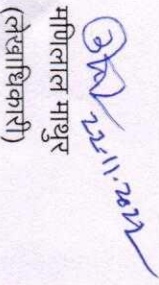 22.11.2022
मणिलाल माथुर
(लेखाधिकारी)